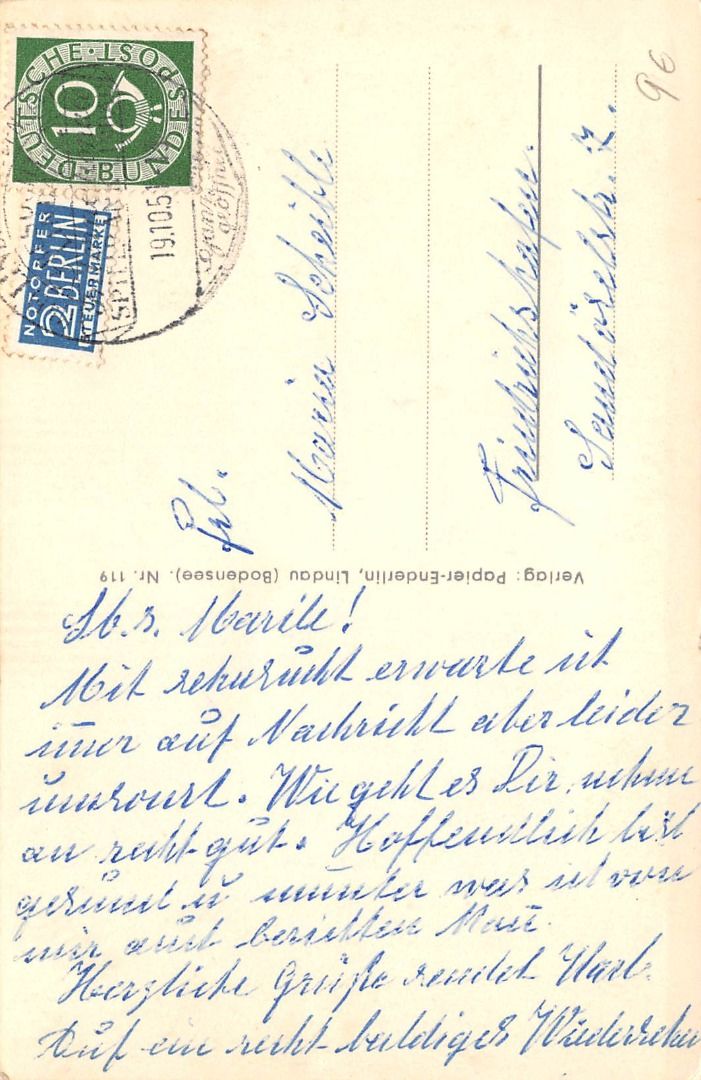 DEUTSCHE BUNDESPOST
10
NOTOPFER
2 BERLIN
STEUERMARKE
19.10.5
Spielbank
geöffnet
96
Frl.
Maria Scheible
Friedrichshafen.
Verlag: Papier-Enderlin, Lindau (Bodensee). Nr. 119
Lb. s. Marile!
Mit sehnsucht erwarte ich
imer auf Nachricht aber leider
umsonst. Wie geht es Dir, nehme
an recht gut. Hoffendlich bist
gesund u munter was ich von
mir auch berichten kan.
Herzliche Grüße sendet Karl.
Auf ein recht baldiges Wiedersehn